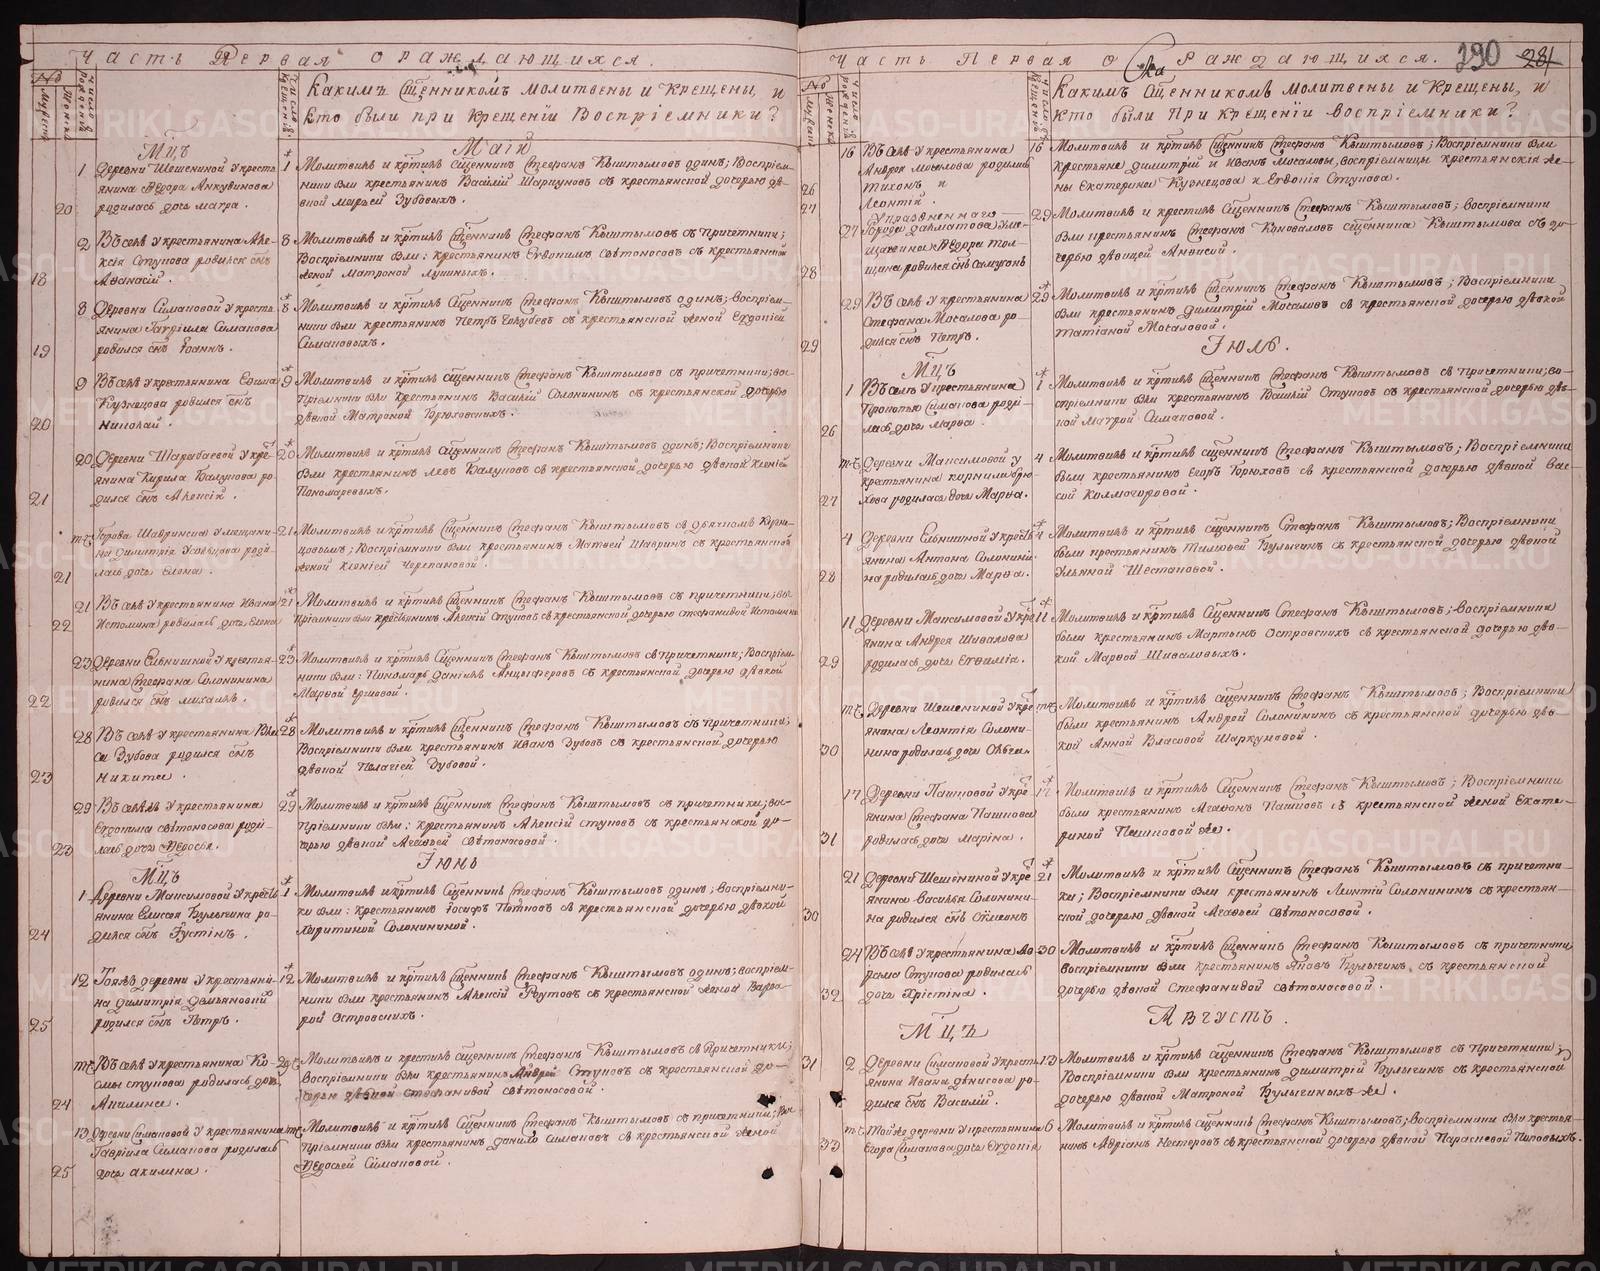 Часть Первая о раждающихся.
№
Мужеска
Женска
Число рожденія
Число крещенія
Какимъ Сщенникомъ молитвены и Крещены, и
Кто были при Крещеніи Воспріемники?
Мцъ
Маій
1 Деревни Шешениной у кресть
янина Ѳедора
20 родилась дочь
1 Молитвилъ и кртилъ Сщенникъ Стефанъ Кыштымовъ одинъ; Воспріем-
ники были крестьянинъ Василій Шаркуновъ съ крестьянской дочерью дѣ-
вкой Марѳой Зубовыхъ.
2 Въ селѣ у крестьянина Але-
ксія Ступова родился снъ
18 Аѳанасій.
8 Молитвилъ и кртилъ Сщенникъ Стефанъ Кыштымовъ съ причетники;
Воспріемники были: крестьянинъ Евдокимъ Свѣтоносовъ съ крестьянской
женой Матроной
8 Деревни Симановой у кресть
янина Гавріила Симанова
19 родился снъ Іоаннъ.
8 Молитвилъ и кртилъ Сщенникъ Стефанъ Кыштымовъ одинъ; воспріем-
ники были крестьянинъ Петръ съ крестьянской женой Евдокіей
Симановыхъ.
9 Въ селѣ у крестьянина
Кузнецова родился снъ
20 Николай.
9 Молитвилъ и кртилъ Сщенникъ Стефанъ Кыштымовъ съ причетники; вос-
пріемники были крестьянинъ Василій Солонининъ съ крестьянской дочерью
дѣвкой Матроной Брюховскихъ.
20 Деревни у кре-
янина Кирила ро-
21 дился снъ Алексій.
20 Молитвилъ и кртилъ сщенникъ Стефанъ Кыштымовъ одинъ; Воспріемники
были крестьянинъ Левъ съ крестьянской дочерью дѣвкой Ксеніей
Пономаревыхъ.
тч Города Шадринска у мещани-
на Димитрія роди-
21 лась дочь Елена.
21 Молитвилъ и кртилъ Сщенникъ Стефанъ Кыштымовъ съ дьячкомъ Кузне-
цовымъ; Воспріемники были крестьянинъ Матвей Шавринъ съ крестьянской
женой Ксеніей Черепановой.
21 Въ селѣ у крестьянина Ивана
22 Истомина родилась дочь Елена
21 Молитвилъ и кртилъ Сщенникъ Стефанъ Кыштымовъ съ причетники; вос-
пріемники были крестьянинъ Алексій Ступовъ съ крестьянской дочерью Стефанидой Истоминой
23 Деревни Ельнишной у крестья-
нина Стефана Солонинина
22 родился снъ Михаилъ.
23 Молитвилъ и кртилъ Сщенникъ Стефанъ Кыштымовъ съ причетники; Воспріем-
ники были: Пономарь Даніилъ Анцыферовъ съ крестьянской дочерью дѣвкой
Марѳой Ершовой.
28 Въ селѣ у крестьянина
Зубова родился снъ
23 Никита.
28 Молитвилъ и кртилъ Сщенникъ Стефанъ Кыштымовъ съ причетники;
Воспріемники были крестьянинъ Иванъ Зубовъ съ крестьянской дочерью
дѣвкой Пелагіей Зубовой.
29 Въ селѣ у крестьянина
Евдокима Свѣтоносова роди-
23 лась дочь Ѳедосья.
29 Молитвилъ и кртилъ Сщенникъ Стефанъ Кыштымовъ съ причетники; вос-
пріемники были: крестьянинъ Алексій Ступовъ съ крестьянской до-
черью дѣвкой Агаѳьей Свѣтоносовой.
Мцъ
Іюнь
1 Деревни Максимовой у кресть
янина Елисея Булыгина ро-
24 дился снъ Іустінъ.
1 Молитвилъ и кртилъ Сщенникъ Стефанъ Кыштымовъ одинъ; воспріемни-
ки были: крестьянинъ Іосифъ съ крестьянской дочерью дѣвкой
Харитиной Солонининой.
12 Тояжъ деревни у крестьяни-
на Димитрія
25 родился снъ Петръ.
12 Молитвилъ и кртилъ Сщенникъ Стефанъ Кыштымовъ одинъ; воспріем-
ники были крестьянинъ Алексій съ крестьянской женой Варва-
рой Островскихъ.
тч Въ селѣ у крестьянина Ко-
смы Ступова родилась дочь
24 Акилина.
29 Молитвилъ и крестилъ сщенникъ Стефанъ Кыштымовъ съ Причетники;
воспріемники были крестьянинъ Андрей Ступовъ съ крестьянской до-
черью дѣвкой Стефанидой Свѣтоносовой
13 Деревни Симановой у крестьянина
Гавріила Симанова родилась
25 дочь Акилина.
Молитвилъ и кртилъ Сщенникъ Стефанъ Кыштымовъ съ причетники; Вос-
пріемники были крестьянинъ Данило Симановъ съ крестьянской женой
Ѳедосьей Симановой.
Часть Первая о Раждающихся.
290
281
№
Мужеска
Женска
Число рожденія
Число крещенія
Какимъ Сщенникомъ молитвены и Крещены, и
кто были при крещеніи воспріемники?
16 Въ селѣ у крестьянина
Андрея Мосалова родились
26 Тихонъ и
27 Леонтій.
16 Молитвилъ и кртилъ Сщенникъ Стефанъ Кыштымовъ; Воспріемники были
крестьяне Димитрій и Иванъ Мосаловы, воспріемницы крестьянскія же-
ны Екатерина Кузнецова и Евдокія Ступова.
Упраздненнаго
27 Города Далматова у ме-
щанина Ѳедора Тол-
28 родился снъ Самсонъ
29 Молитвилъ и кртилъ Сщенникъ Стефанъ Кыштымовъ; воспріемники
были крестьянинъ Стефанъ Коноваловъ сщенника Кыштымова съ до-
черью дѣвицей Анфисой.
29 Въ селѣ у крестьянина
Стефана Мосалова ро-
29 дился снъ Петръ.
29 Молитвилъ и кртилъ Сщенникъ Стефанъ Кыштымовъ; Воспріемники
были крестьянинъ Димитрій Мосаловъ съ крестьянской дочерью дѣвкой
Татіаной Мосаловой.
Мцъ
Іюль.
1 Въ селѣ у крестьянина
Прокопья Симанова роди-
26 лась дочь Марѳа.
1 Молитвилъ и кртилъ Сщенникъ Стефанъ Кыштымовъ съ причетники; во-
спріемники были крестьянинъ Василій Ступовъ съ крестьянской дочерью дѣв-
кой Матроной Симановой.
тч Деревни Максимовой у
крестьянина Корнила Брю-
27 хова родилась дочь Марѳа.
4 Молитвилъ и кртилъ сщенникъ Стефанъ Кыштымовъ; Воспріемники
были крестьянинъ Егоръ Брюховъ съ крестьянской дочерью дѣвкой Вас-
сой Колмогоровой.
4 Деревни Ельнишной у кресть
янина Антона Солонини-
28 на родилась дочь Марѳа.
4 Молитвилъ и кртилъ сщенникъ Стефанъ Кыштымовъ; Воспріемники
были крестьянинъ Тимоѳей Булыгинъ съ крестьянской дочерью дѣвкой
Ульяной Шестаковой.
11 Деревни Максимовой у кресть
янина Андрея Шивалова
29 родилась дочь Евфимія.
11 Молитвилъ и кртилъ Сщенникъ Стефанъ Кыштымовъ; Воспріемники
были крестьянинъ Мартынъ Островскихъ съ крестьянской дочерью дѣв-
кой Марѳой Шиваловыхъ.
тч Деревни Шешениной у кре
янина Леонтія Солони-
30 нина родилась дочь Ольга.
тч Молитвилъ и кртилъ Сщенникъ Стефанъ Кыштымовъ; Воспріемники
были крестьянинъ Андрей Солонининъ съ крестьянской дочерью дѣв-
кой Анной Власовой Шаркуновой.
17 Деревни Пашковой у кре
янина Стефана Пашкова
31 родилась дочь Марина.
17 Молитвилъ и кртилъ Сщенникъ Стефанъ Кыштымовъ; Воспріемники
были крестьянинъ Агафонъ Пашковъ съ крестьянской женой Екате-
риной Пашковой же.
21 Деревни Шешениной у кре
янина Василья Солонини-
30 на родился снъ Сѵмеонъ
21 Молитвилъ и кртилъ Сщенникъ Стефанъ Кыштымовъ съ причетни-
ки; Воспріемники были крестьянинъ Леонтій Солонининъ съ крестьян-
ской дочерью дѣвкой Агаѳьей Свѣтоносовой.
24 Въ селѣ у крестьянина
Ступова родилась
32 дочь Хрістіна.
30 Молитвилъ и кртилъ Сщенникъ Стефанъ Кыштымовъ съ причетники
воспріемники были крестьянинъ Яковъ Булыгинъ съ крестьянской
дочерью дѣвкой Стефанидой Свѣтоносовой.
Мцъ
Августъ.
31 2 Деревни Симановой у кресть
янина Ивана Денисова ро-
дился снъ Василій.
Молитвилъ и кртилъ Сщенникъ Стефанъ Кыштымовъ съ Причетники;
Воспріемники были крестьянинъ Димитрій Булыгинъ съ крестьянской
дочерью дѣвкой Матроной Булыгиныхъ же.
33 тч Той же деревни у крестьянина
Егора Симанова дочь Евдокія
6 Молитвилъ и кртилъ Сщенникъ Стефанъ Кыштымовъ; Воспріемники были крестья-
нинъ Адріанъ Нестеровъ съ крестьянской дочерью дѣвкой Парасковей Поповыхъ.
METRIKI.GASO-URAL.RU